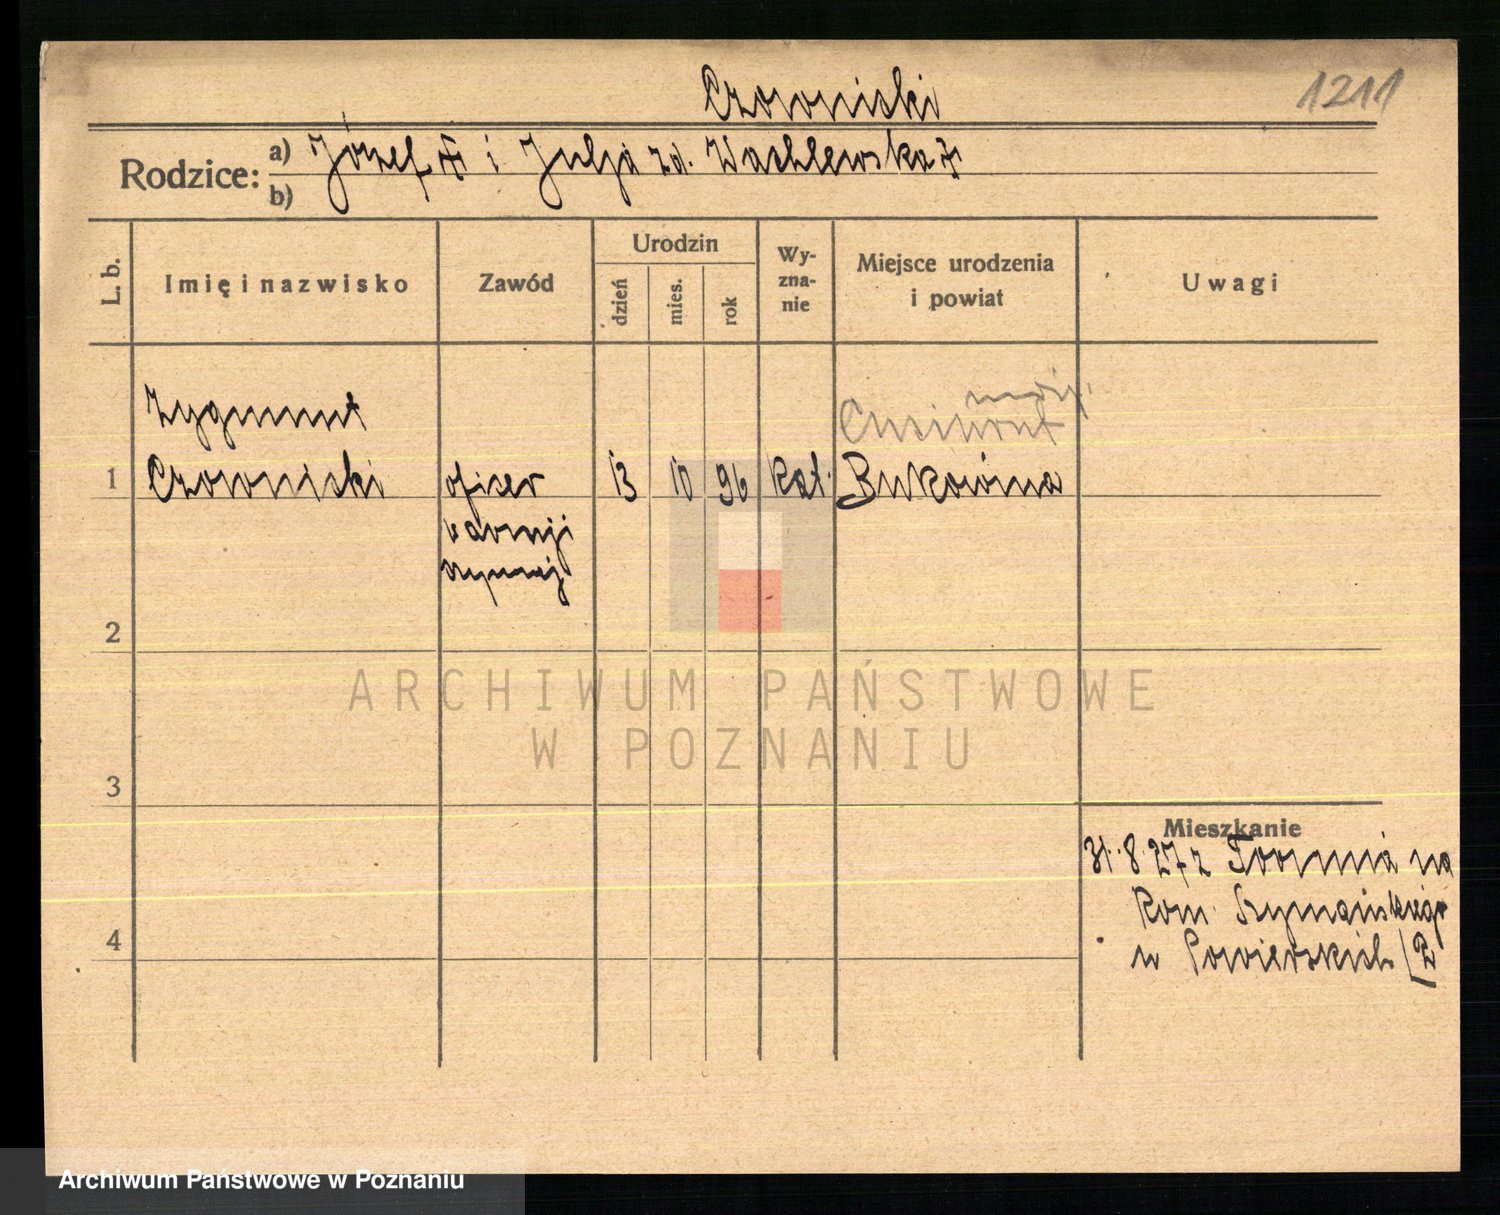 Czoroniski
1211
Rodzice:
a) Józef i Julja zd. Wachlewska
b)
L. b.
Imię i nazwisko
Zawód
Urodzin
dzień
mies.
rok
Wy-
zna-
nie
Miejsce urodzenia
i powiat
Uwagi
Zygmunt
1 Czoroniski oficer 13 10 96 kat. Bukowina
2
3
4
Mieszkanie
31.8.27 z Torunia na
Rom. Szymańskiego
ARCHIWUM PAŃSTWOWE
W POZNANIU
Archiwum Państwowe w Poznaniu